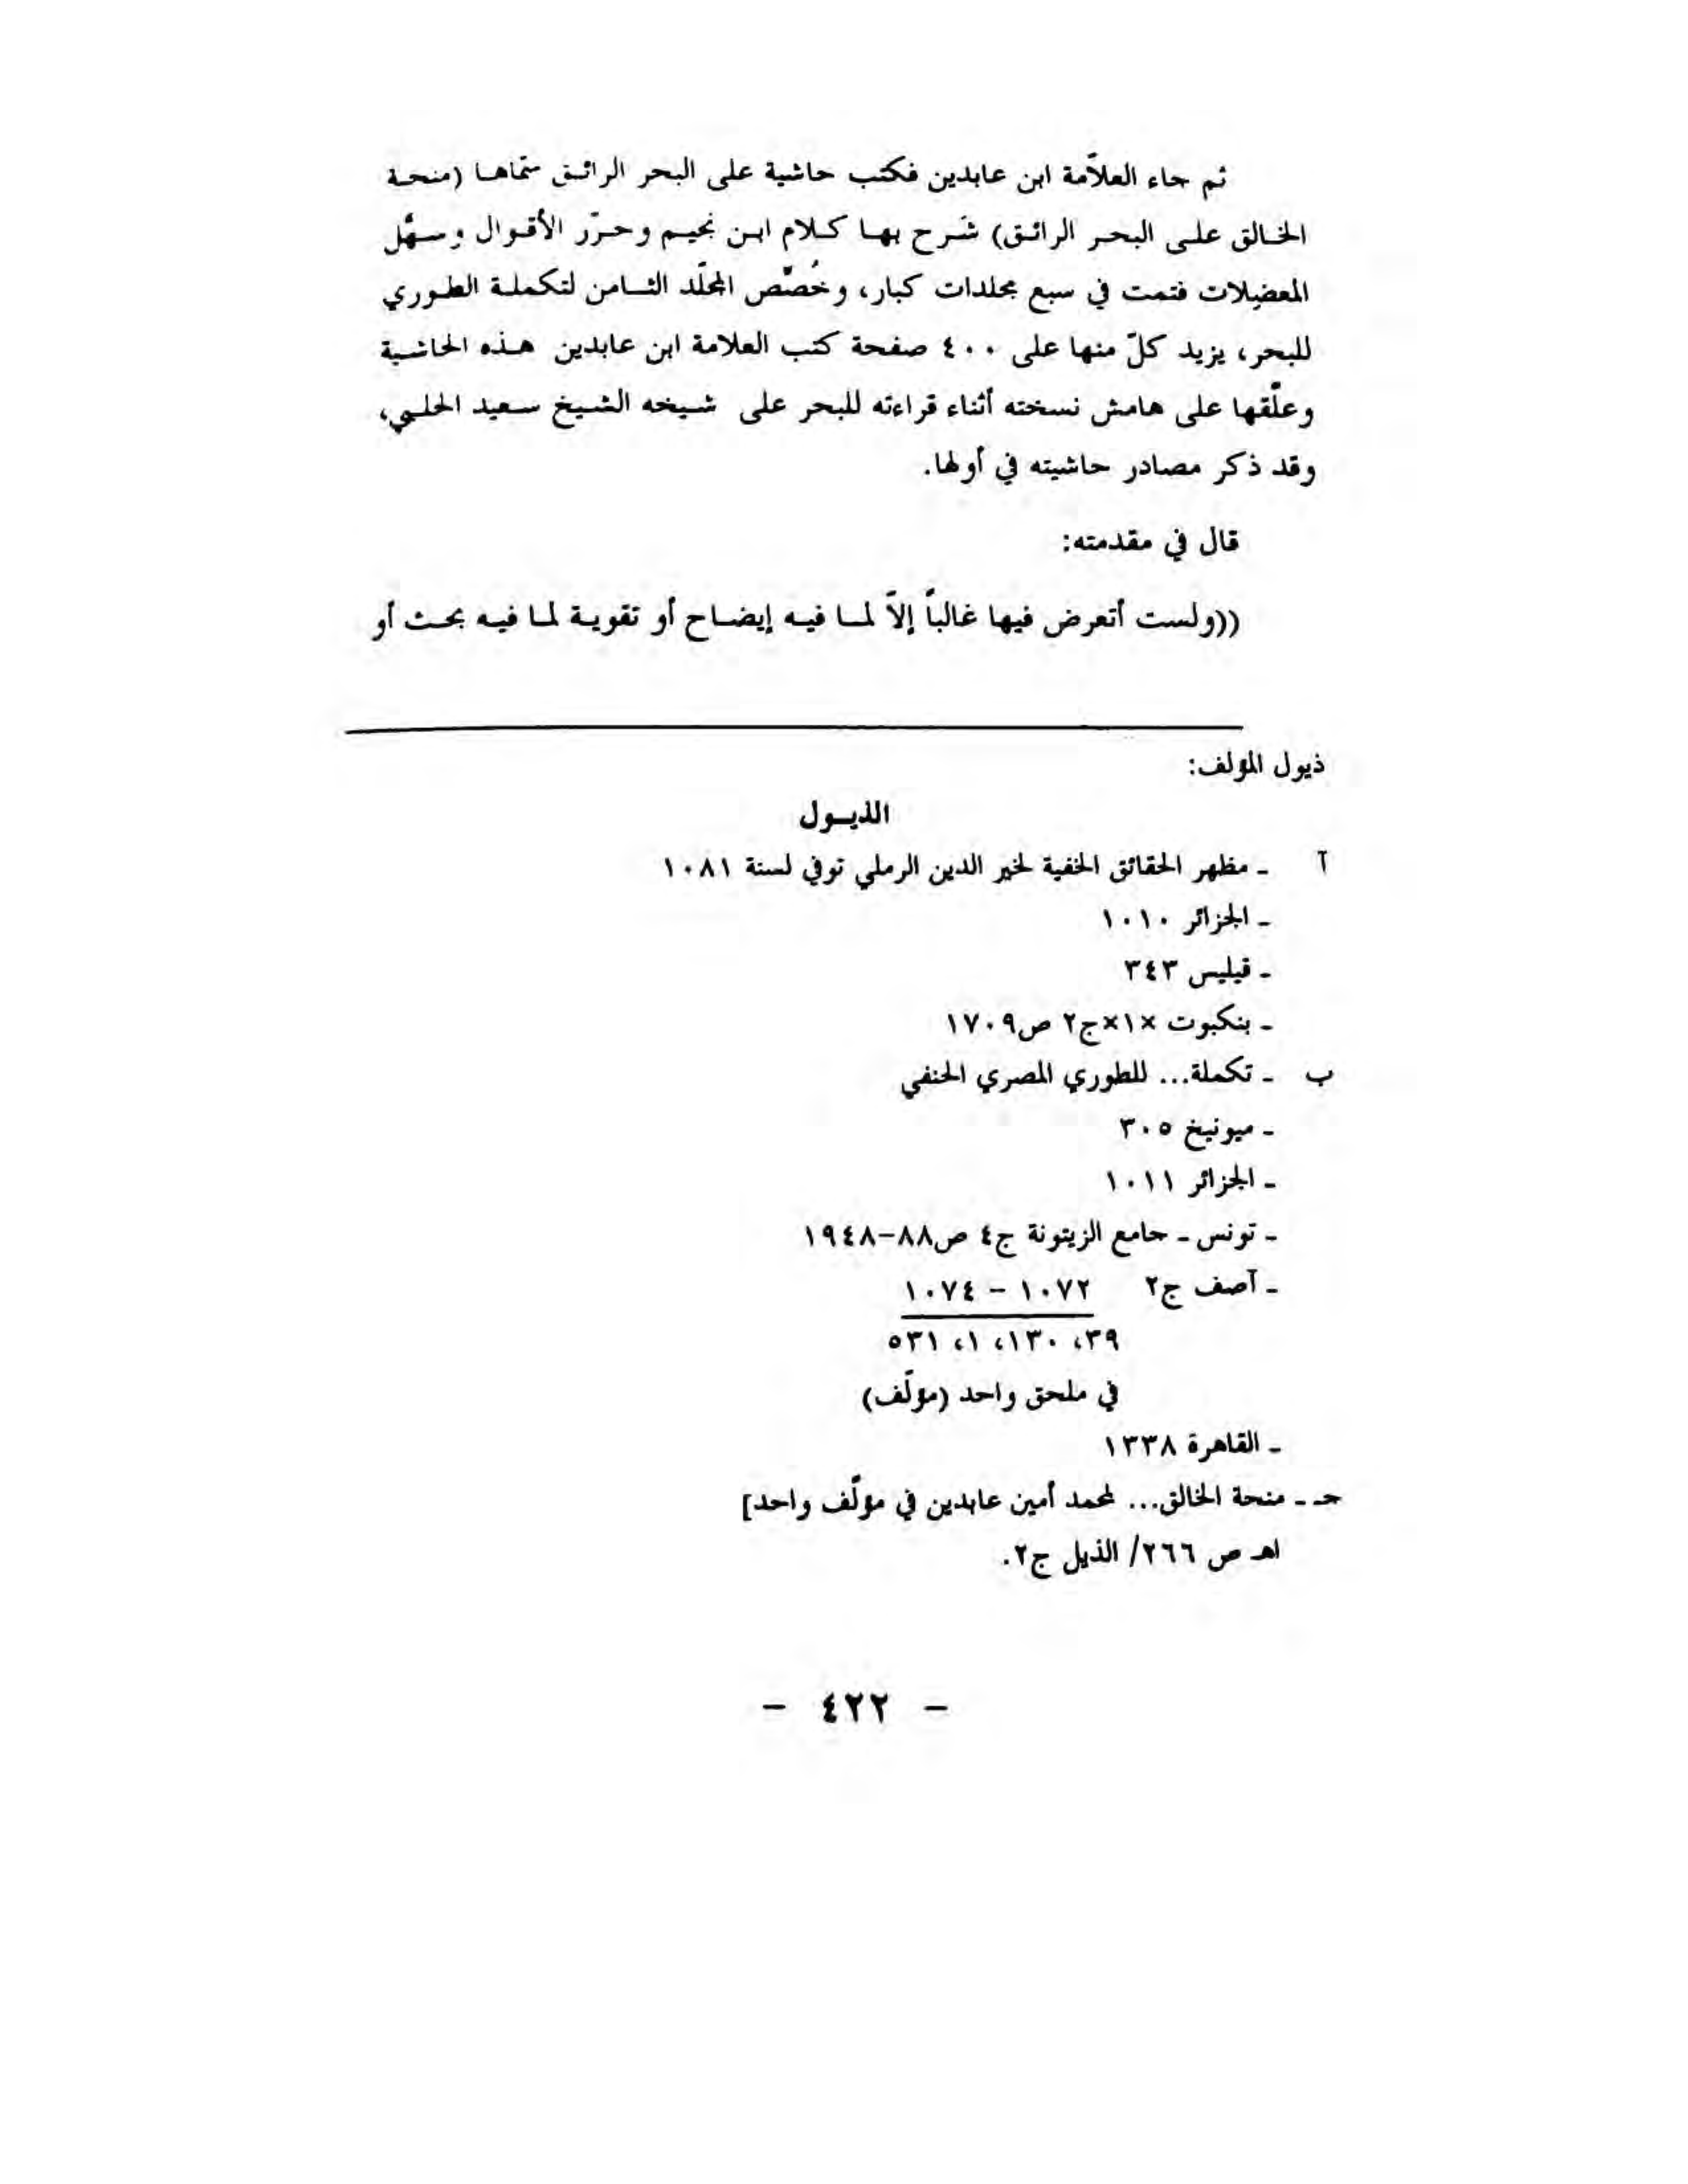 ثم جاء العلاّمة ابن عابدين فكتب حاشية على البحر الرائـق سمّاهـا (منحـة
الخـالق علـى البحـر الرائـق) شَـرح بهـا كـلام ابـن نجيـم وحـرّر الأقـوال وسـهّل
المعضِلات فتمت في سبع مجلدات كبار، وخُصّص المجلّد الثـامن لتكملـة الطـوري
للبحر، يزيد كلّ منها على ٤٠٠ صفحة كتب العلامة ابن عابدين هـذه الحاشـية
وعلّقها على هامش نسخته أثناء قراءته للبحر على شـيخه الشـيخ سـعيد الحلـبي،
وقد ذكر مصادر حاشيته في أولها.
قال في مقدمته:
((ولست أتعرض فيها غالباً إلاّ لمـا فيـه إيضـاح أو تقويـة لمـا فيـه بحـث أو
ذيول المؤلف:
الذيـول
آ ـ مظهر الحقائق الخفية لخير الدين الرملي توفي لسنة ١٠٨١
ـ الجزائر ١٠١٠
ـ قيليس ٣٤٣
ـ بنكبوت ×١×ج٢ ص١٧٠٩
ب ـ تكملة... للطوري المصري الحنفي
ـ ميونيخ ٣٠٥
ـ الجزائر ١٠١١
ـ تونس ـ جامع الزيتونة ج٤ ص٨٨-١٩٤٨
ـ آصف ج٢ ١٠٧٢ - ١٠٧٤
٣٩، ١٣٠، ١، ٥٣١
في ملحق واحد (مؤلّف)
ـ القاهرة ١٣٣٨
جـ ـ منحة الخالق... لمحمد أمين عابدين في مؤلّف واحد]
اهـ ص ٢٦٦/ الذيل ج٢.
- ٤٢٢ -